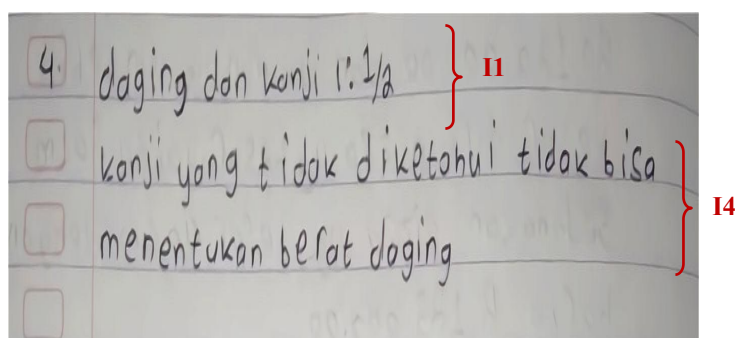 4. daging dan kanji 1:1/2 I1
kanji yang tidak diketahui tidak bisa
menentukan berat daging I4